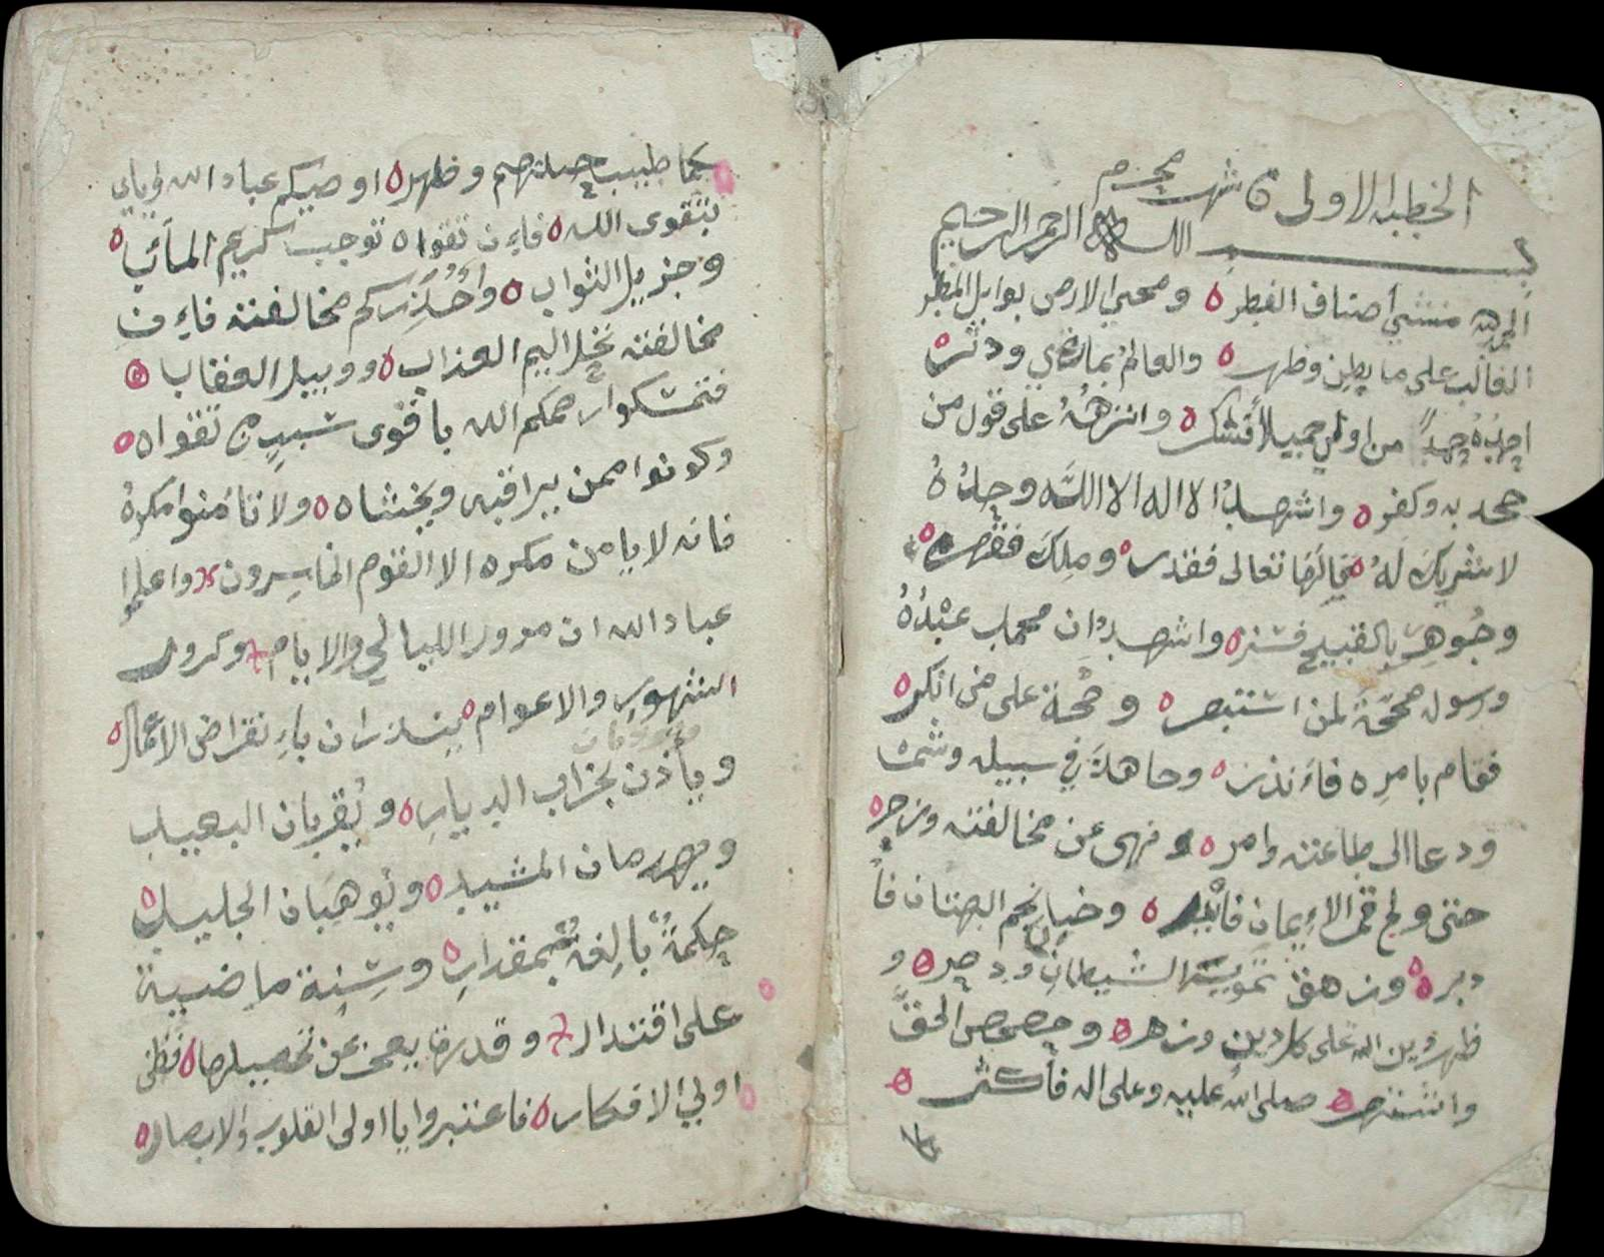 الخطبه الاولى من شهر محرم
بسم الله الرحمن الرحيم
الحمد لله منشي أصناف الفطر ه ومحيي الارض بوابل المطر
الغالب على ما بطن وظهر ه والعالم بما خفي ودثر ه
احمده حمداً من اولي جميلاً فشكر ه وانزهه على قول من
جحد به وكفر ه واشهد ان لا اله الا الله وحده
لا شريك له تعالى فقدر ه وملك فقهر ه
وجوهر بالقبيح فستر ه واشهد ان محمد عبده
ورسوله محجة لمن استبصر ه وحجة على من انكر ه
فقام بامره فاءنذر ه وجاهد في سبيله وشمر
ودعا الى طاعته وامر ه ونهى عن مخالفته وزجر ه
حتى ولج قمر الاءيمان فابدر ه وخبا نجم البهتان فأ
دبر ه وزهق تمويه الشيطان ودحر ه و
ظهر دين الله على كل دين وزهر ه وحصحص الحق
واشتهر ه صلى الله عليه وعلى اله فأكثر ه
كما طيب جملتهم وطهر ه اوصيكم عباد الله واياي
بتقوى الله ه فاءن تقواه توجب كريم المآب ه
وجزيل الثواب ه وأحذركم مخالفته فاءن
مخالفته تحل اليم العذاب ه ووبيل العقاب ه
فتمسكوا رحمكم الله باقوى سبب من تقواه ه
وكونوا ممن يراقبه ويخشاه ه ولا تاءمنوا مكره
فانه لا يامن مكره الا القوم الخاسرون واعلموا
عباد الله ان مرور الليالي والايام وكرور
الشهور والاعوام ه ينذران باءنقراض الاعمار ه
ويأذن بخراب الديار ه ويقربان البعيد
ويهدمان المشيد ه ويوهبان الجليد ه
حكمة بالغة بمقدار ه وسنة ماضية
على اقتدار وقدرة يعجز عن تحصيلها ه فطن
اولي الافكار ه فاعتبروا يا اولى القلوب والابصار ه